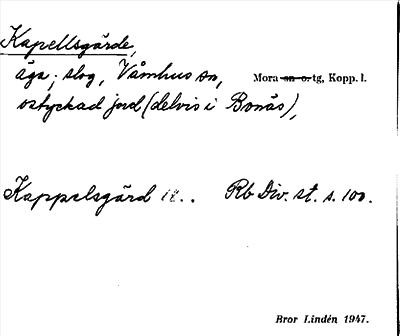 Kapellsgärde,
äga; slog, Våmhus sn, Mora sn o. tg, Kopp. l.
ostyckad jord (delvis i Bonäs),
Kappelsgärd Rb Div. st. s. 100.
Bror Lindén 1947.